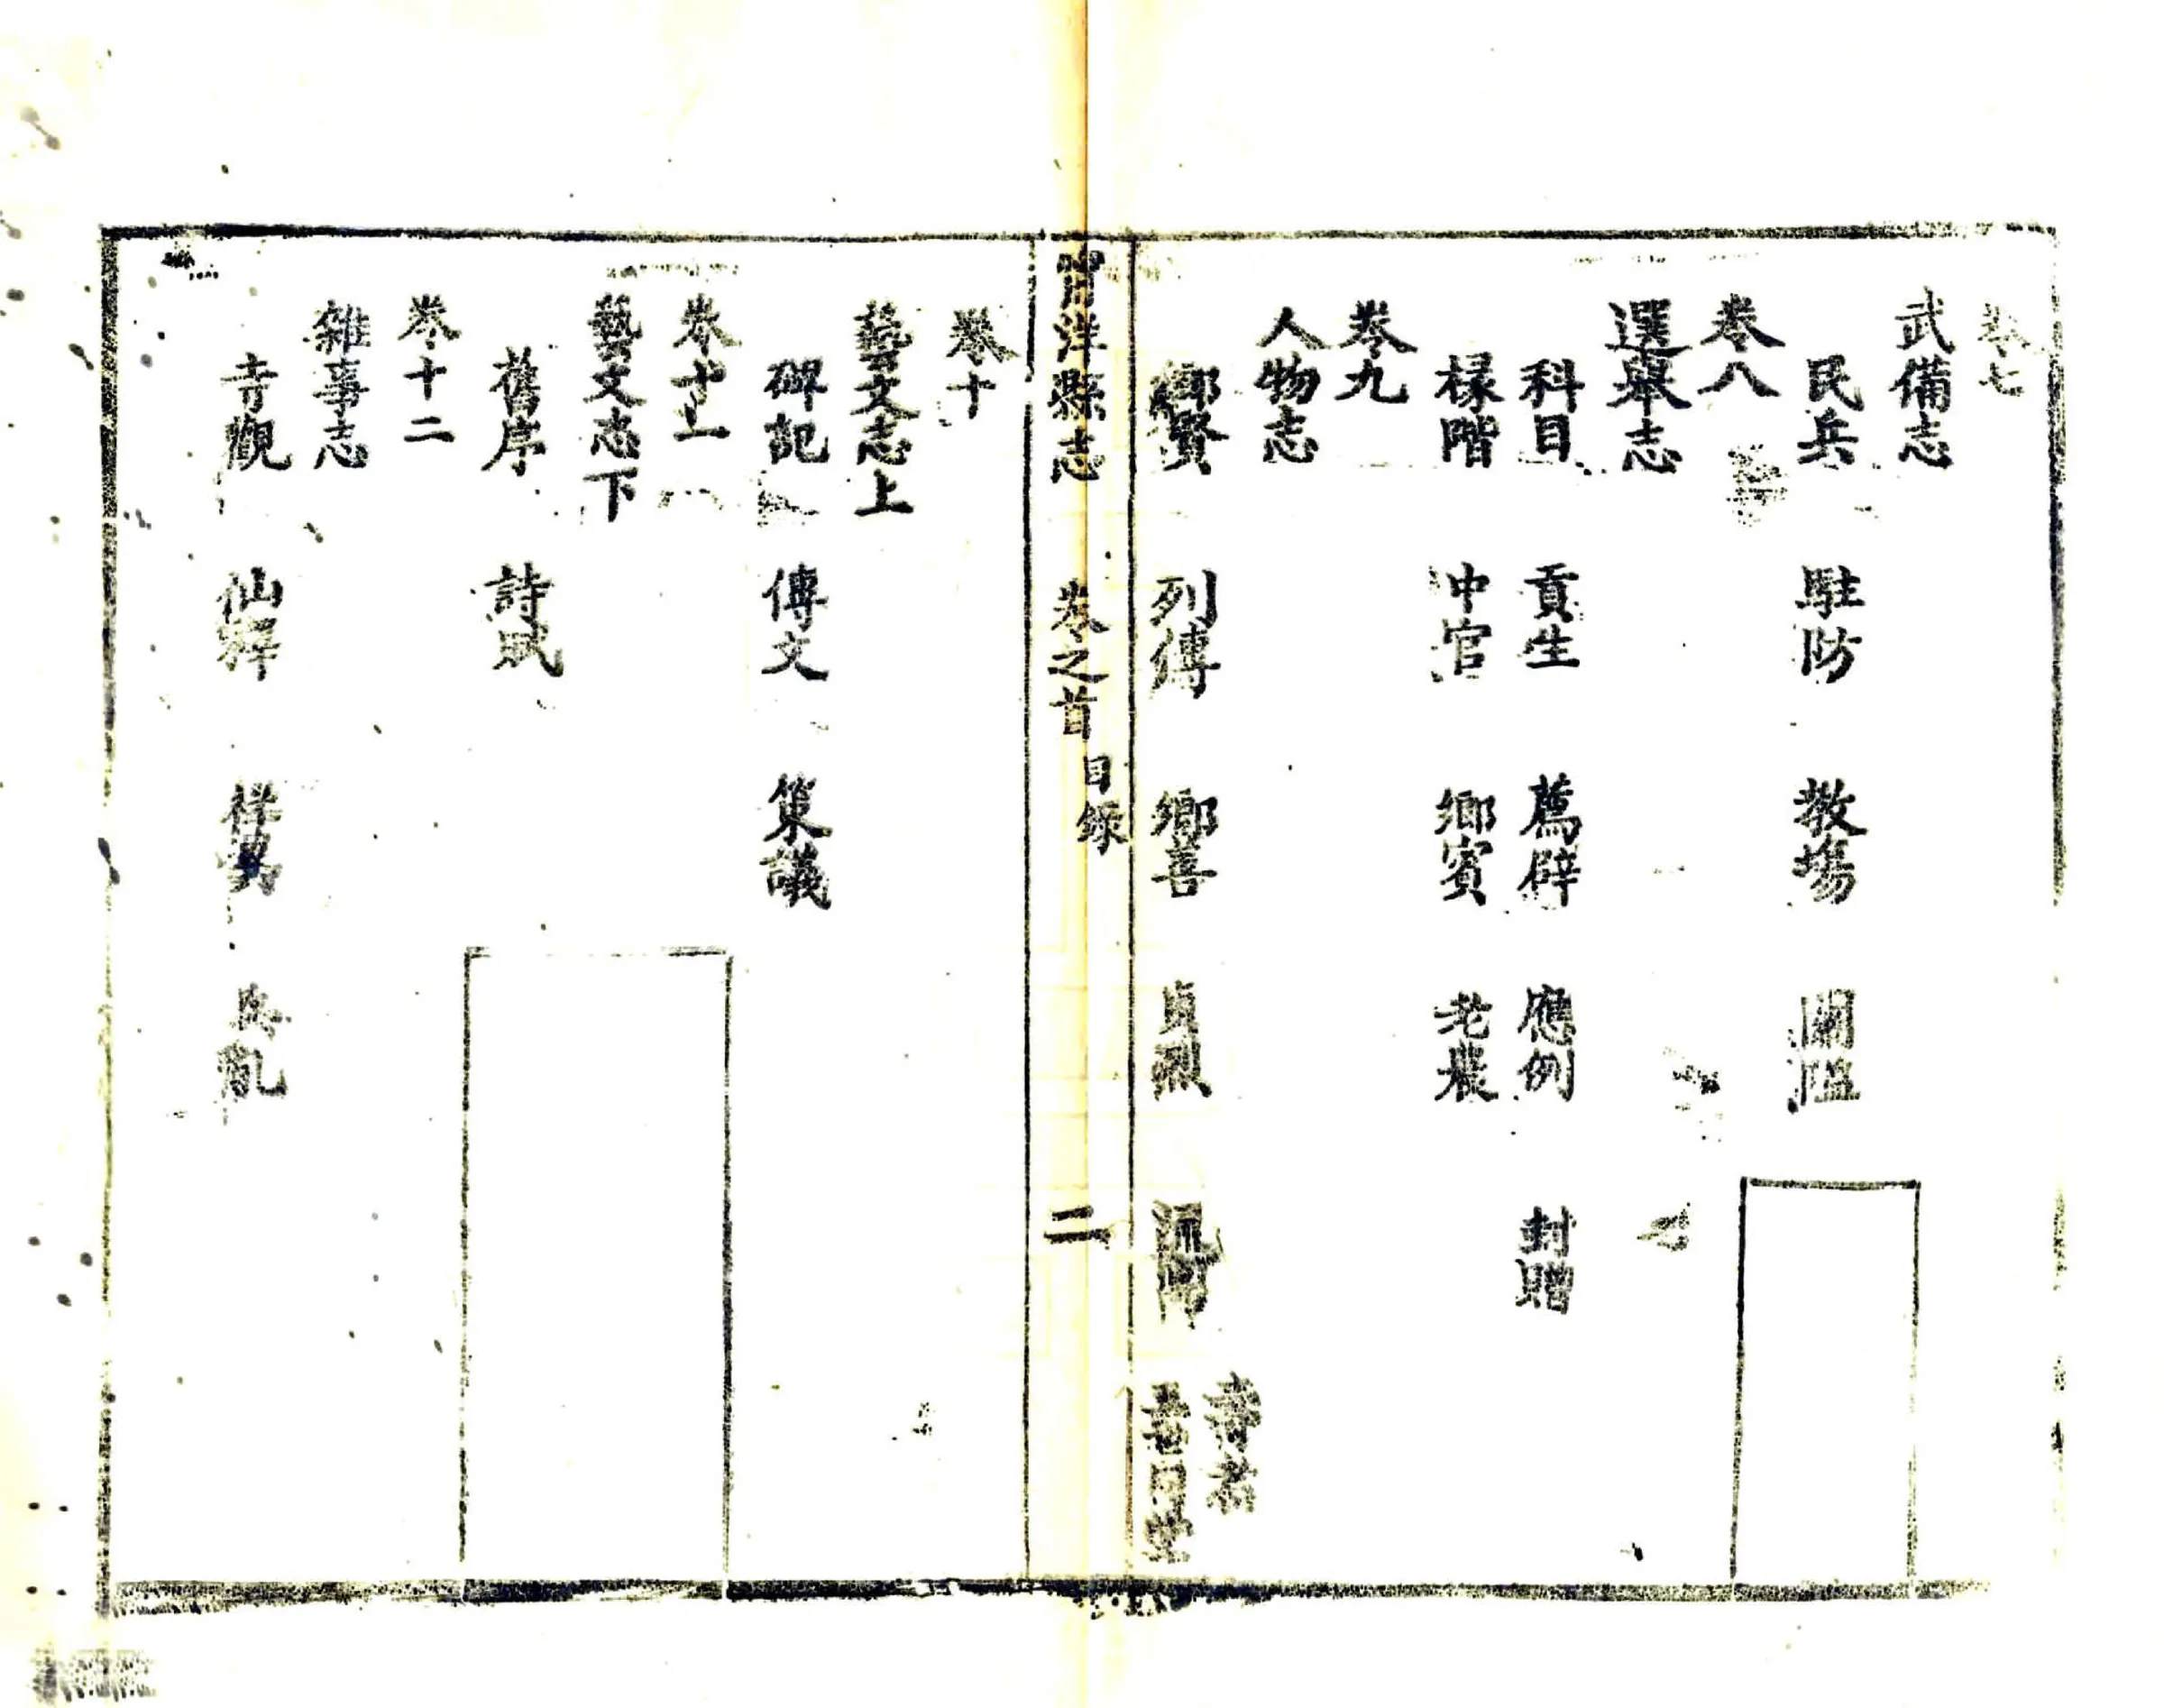 卷七
武備志
民兵 駐防 教場 關隘
卷八
選舉志
科目 貢生 薦辟 應例 封贈
掾階 中官 鄉賓 老農
卷九
人物志
鄉賢 列傳 鄉善 貞烈 流寓
耆者
甯洋縣志 卷之首 目錄 二
卷十
藝文志上
碑記 傳文 策議
卷十一
藝文志下
舊序 詩賦
卷十二
雜事志
寺觀 仙釋 祥異 兵亂